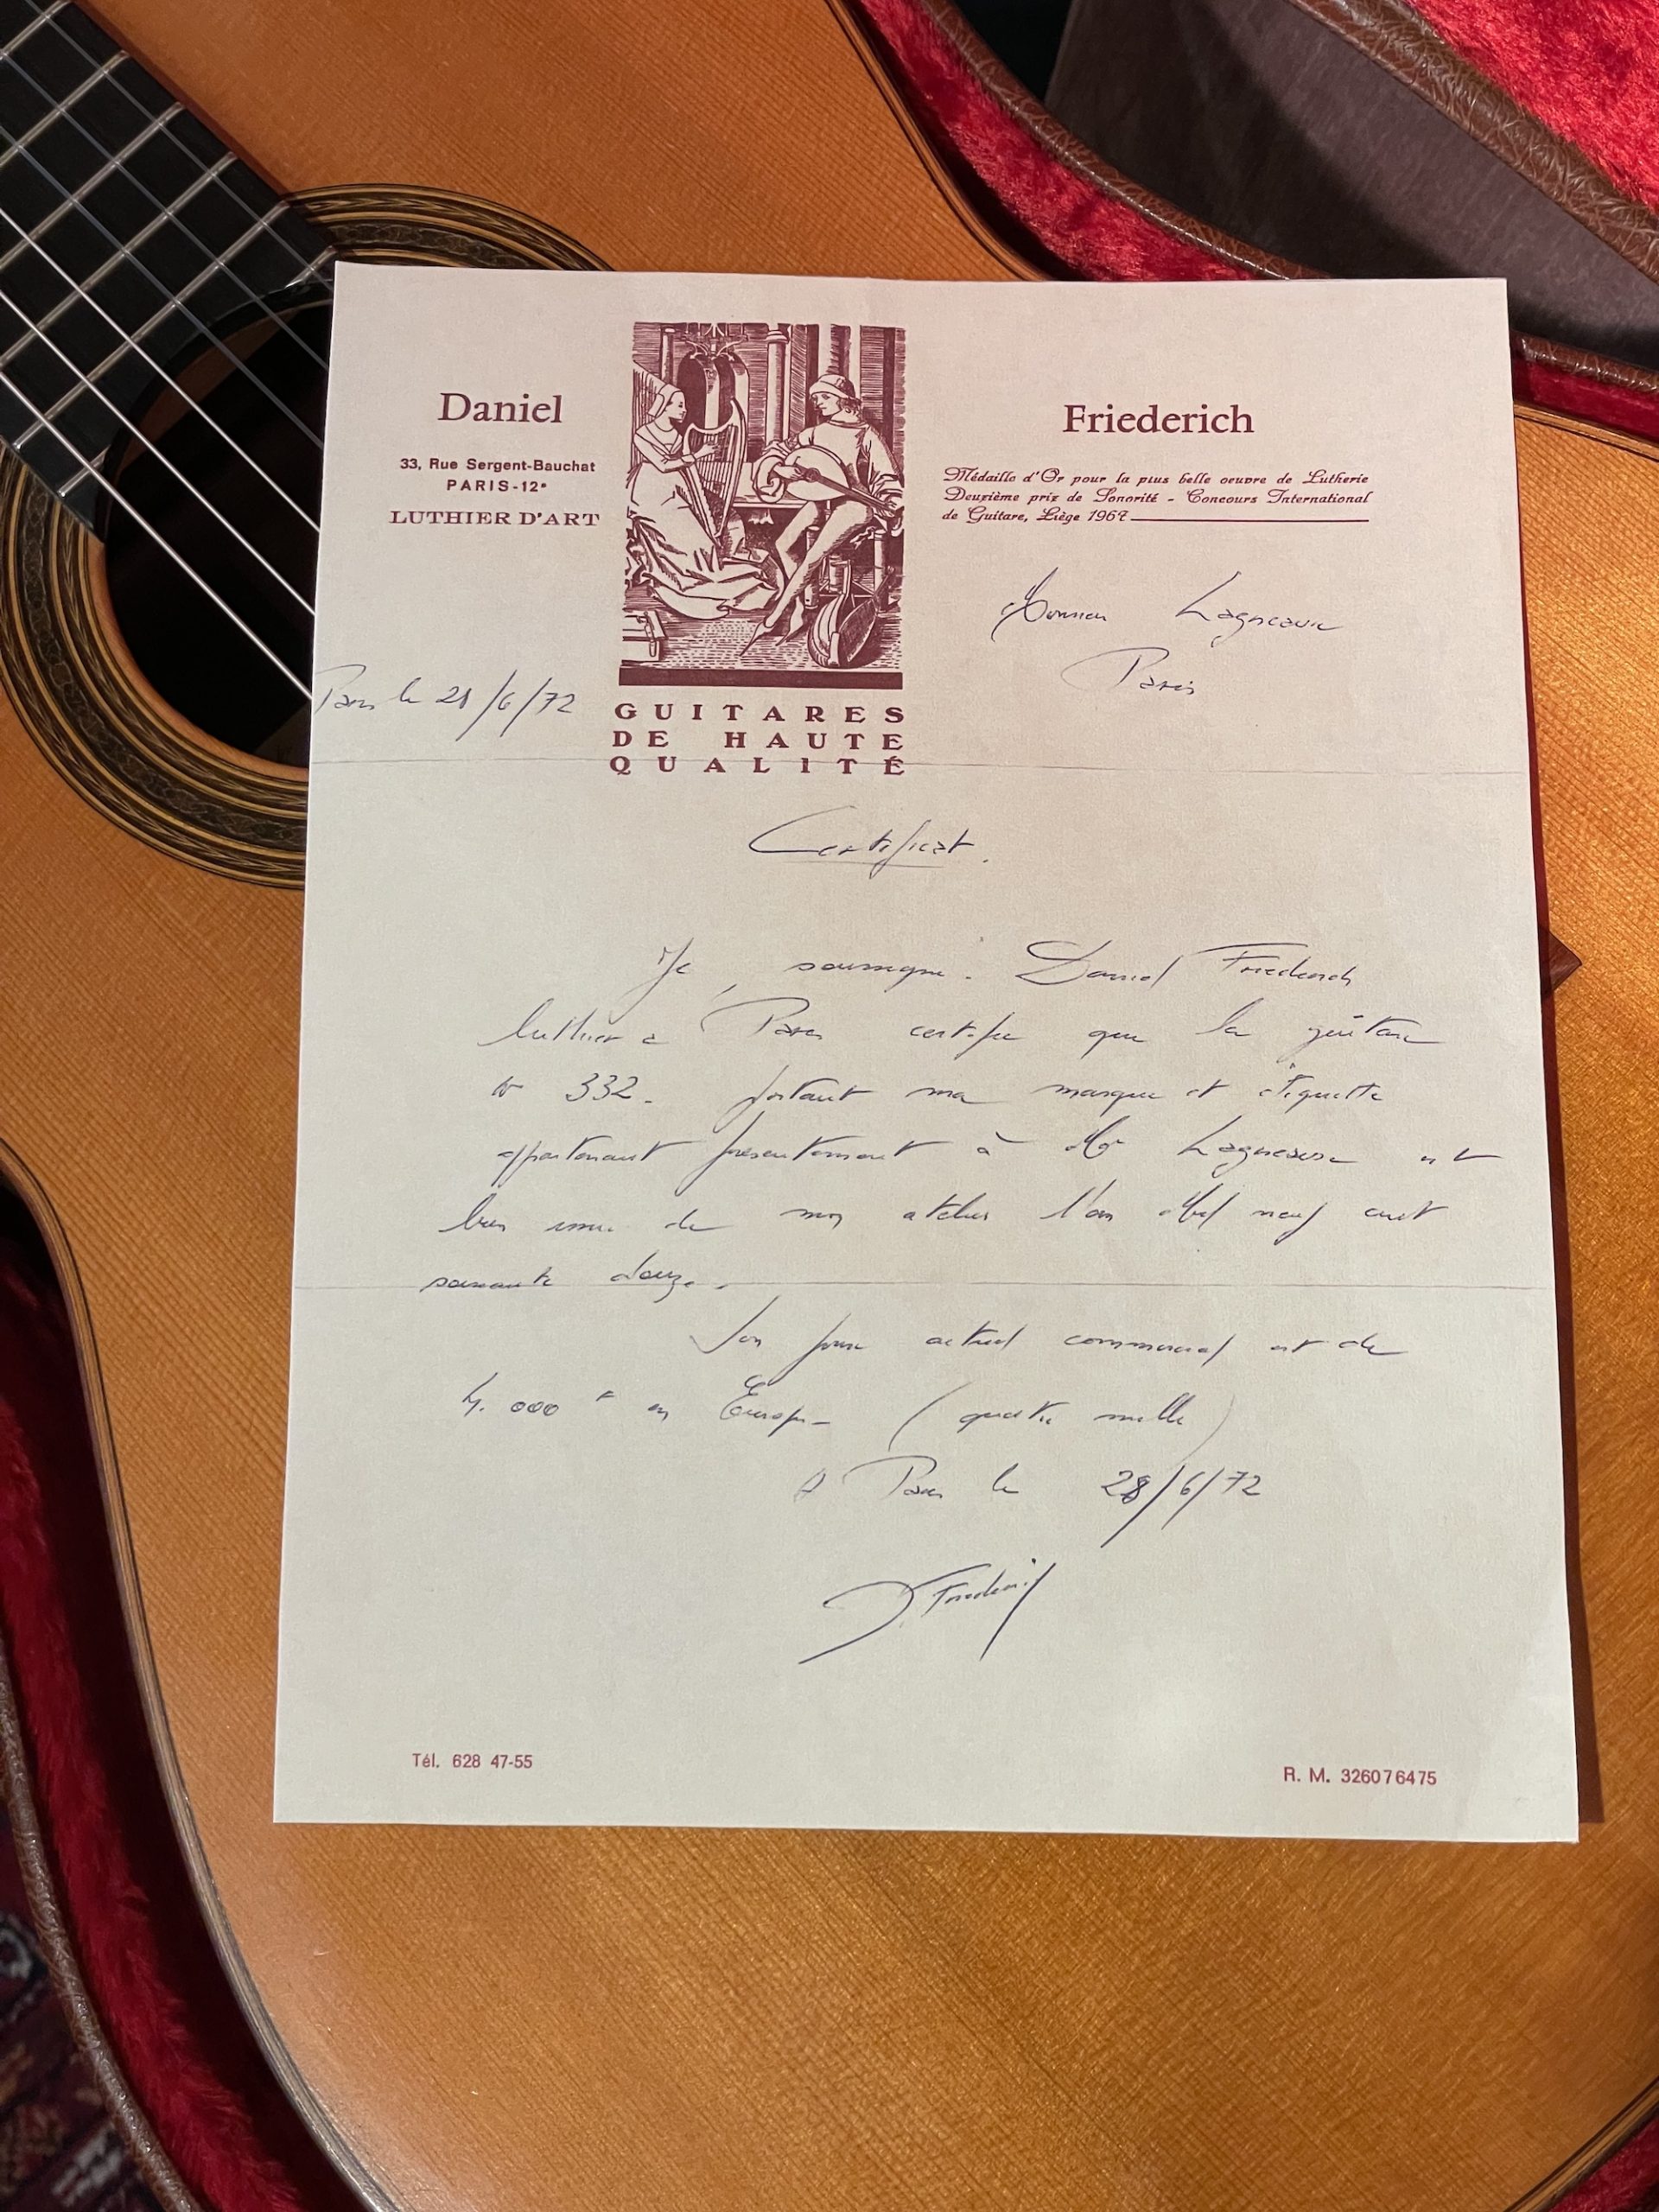 Daniel
Friederich
33, Rue Sergent-Bauchat
PARIS-12e
LUTHIER D'ART
Médaille d'Or pour la plus belle oeuvre de Lutherie
Deuxième prix de Sonorité - Concours International
de Guitare, Liège 1967
Monsieur Lagneaux
Paris
Paris le 28/6/72
GUITARES
DE HAUTE
QUALITÉ
Certificat.
Je, soussigné. Daniel Friederich
luthier à Paris certifie que la guitare
N° 332. portant ma marque et étiquette
appartenant présentement à Mr Lagneaux est
bien issue de mon atelier l'an Mil neuf cent
soixante douze.
Son prix actuel commercial est de
4.000 F en Europe (quatre mille)
A Paris le 28/6/72
D. Friederich
Tél. 628 47-55
R. M. 326076475